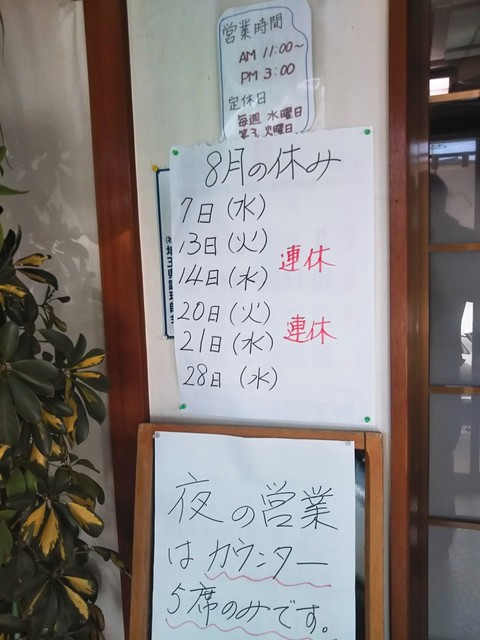 営業時間
AM 11:00～
PM 3:00
定休日
毎週 水曜日
第3 火曜日
8月の休み
7日(水)
13日(火)
14日(水)
連休
20日(火)
21日(水)
連休
28日(水)
夜の営業
はカウンター
5席のみです。